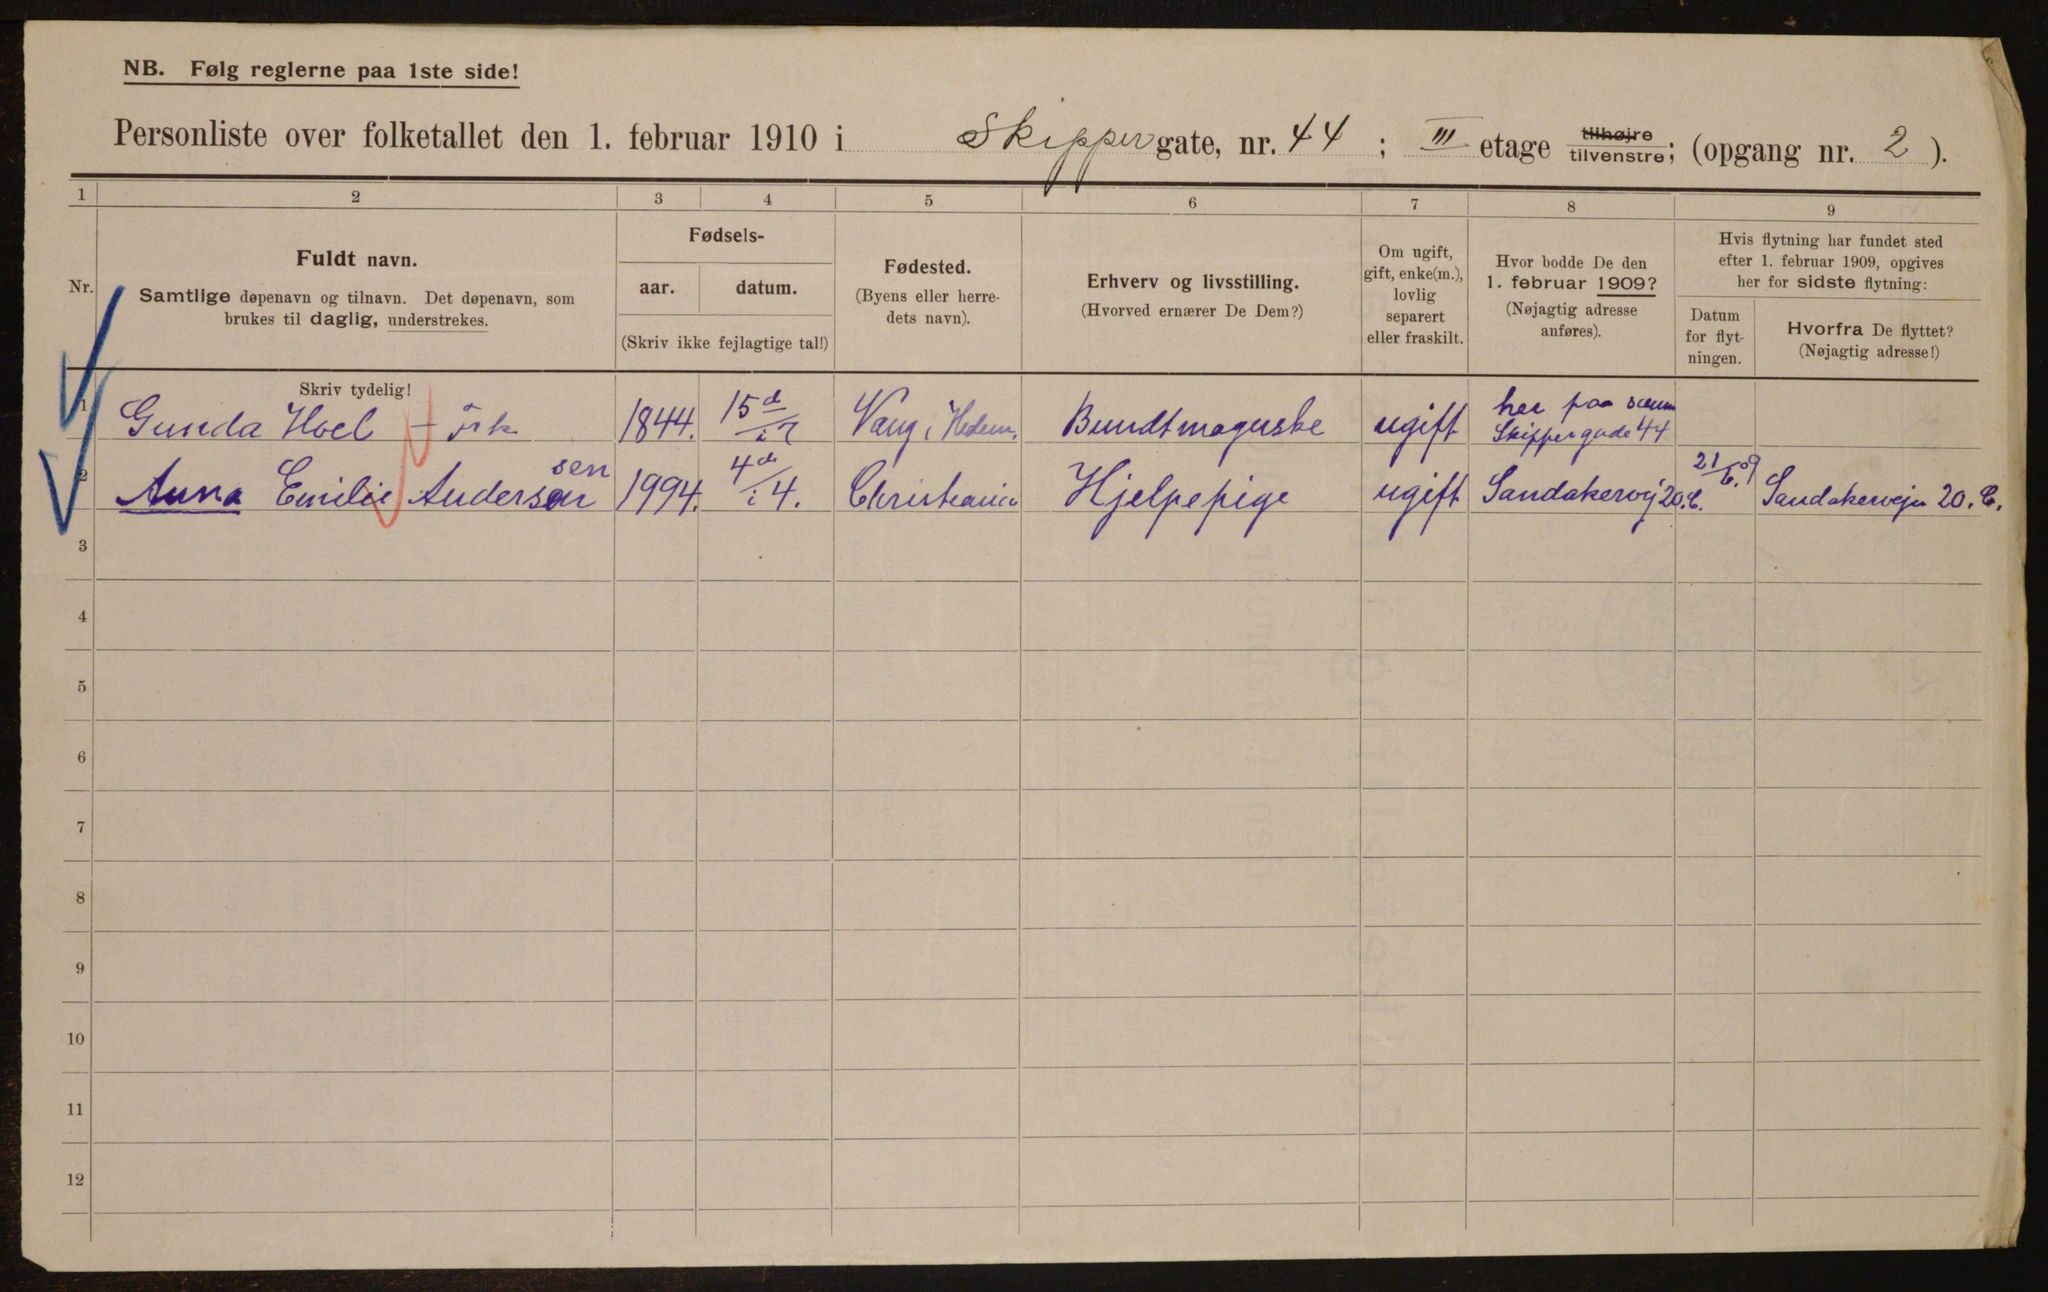 NB. Følg reglerne paa 1ste side!
Personliste over folketallet den 1. februar 1910 i Skippergate, nr. 44 ; III etage tilhøjre tilvenstre; (opgang nr. 2 ).
1 2 3 4 5 6 7 8 9
Nr.
Fuldt navn.
Samtlige døpenavn og tilnavn. Det døpenavn, som
brukes til daglig, understrekes.
Skriv tydelig!
Fødsels-
aar. datum.
(Skriv ikke fejlagtige tal!)
Fødested.
(Byens eller herre-
dets navn).
Erhverv og livsstilling.
(Hvorved ernærer De Dem?)
Om ugift,
gift, enke(m.),
lovlig
separert
eller fraskilt.
Hvor bodde De den
1. februar 1909?
(Nøjagtig adresse
anføres).
Hvis flytning har fundet sted
efter 1. februar 1909, opgives
her for sidste flytning:
Datum
for flyt-
ningen.
Hvorfra De flyttet?
(Nøjagtig adresse!)
1 Gunda Hoel 1844. 15de/i Vang i Hedem. Bundtmagerske ugift her paa samm Skippergade 44
2 Anna Emilie Andersen sen 1994. 4de/i 4. Christiania Hjelpepige ugift Sandakervej 20.C. 21/6.09 Sandakervejn 20. C.
3
4
5
6
7
8
9
10
11
12